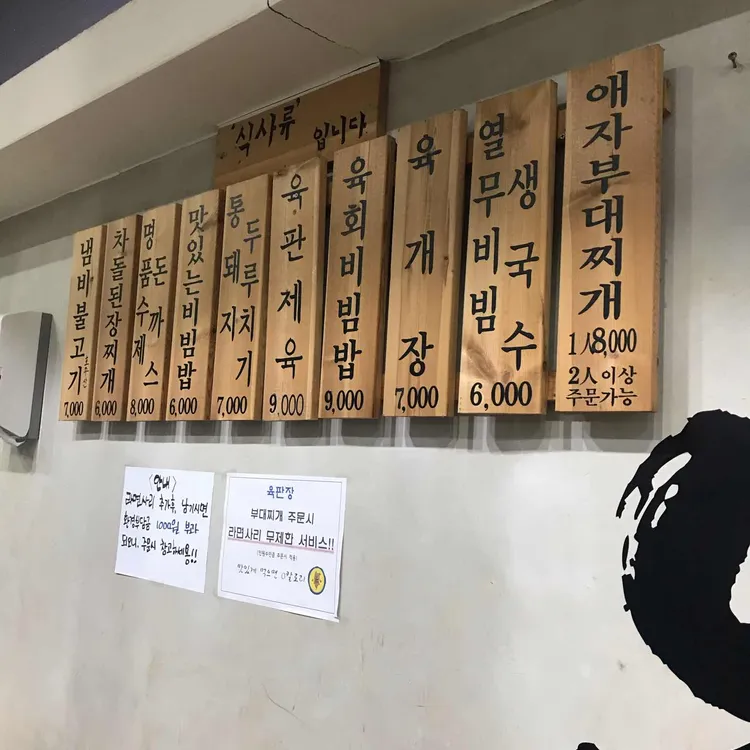 '식사류' 입니다.
냄비불고기
7,000
차돌된장찌개
6,000
명품수제
돈까스
8,000
맛있는비빔밥
6,000
통돼지
두루치기
7,000
육판제육
9,000
육회비빔밥
9,000
육개장
7,000
열무비빔
생국수
6,000
애자부대찌개
1人8,000
2人이상
주문가능
<안내>
라면사리 추가후, 남기시면
환경부담금 1000원 부과
되오니, 주문시 참고하세용!!
육판장
부대찌개 주문시
라면사리 무제한 서비스!!
맛있게 먹으면 0칼로리